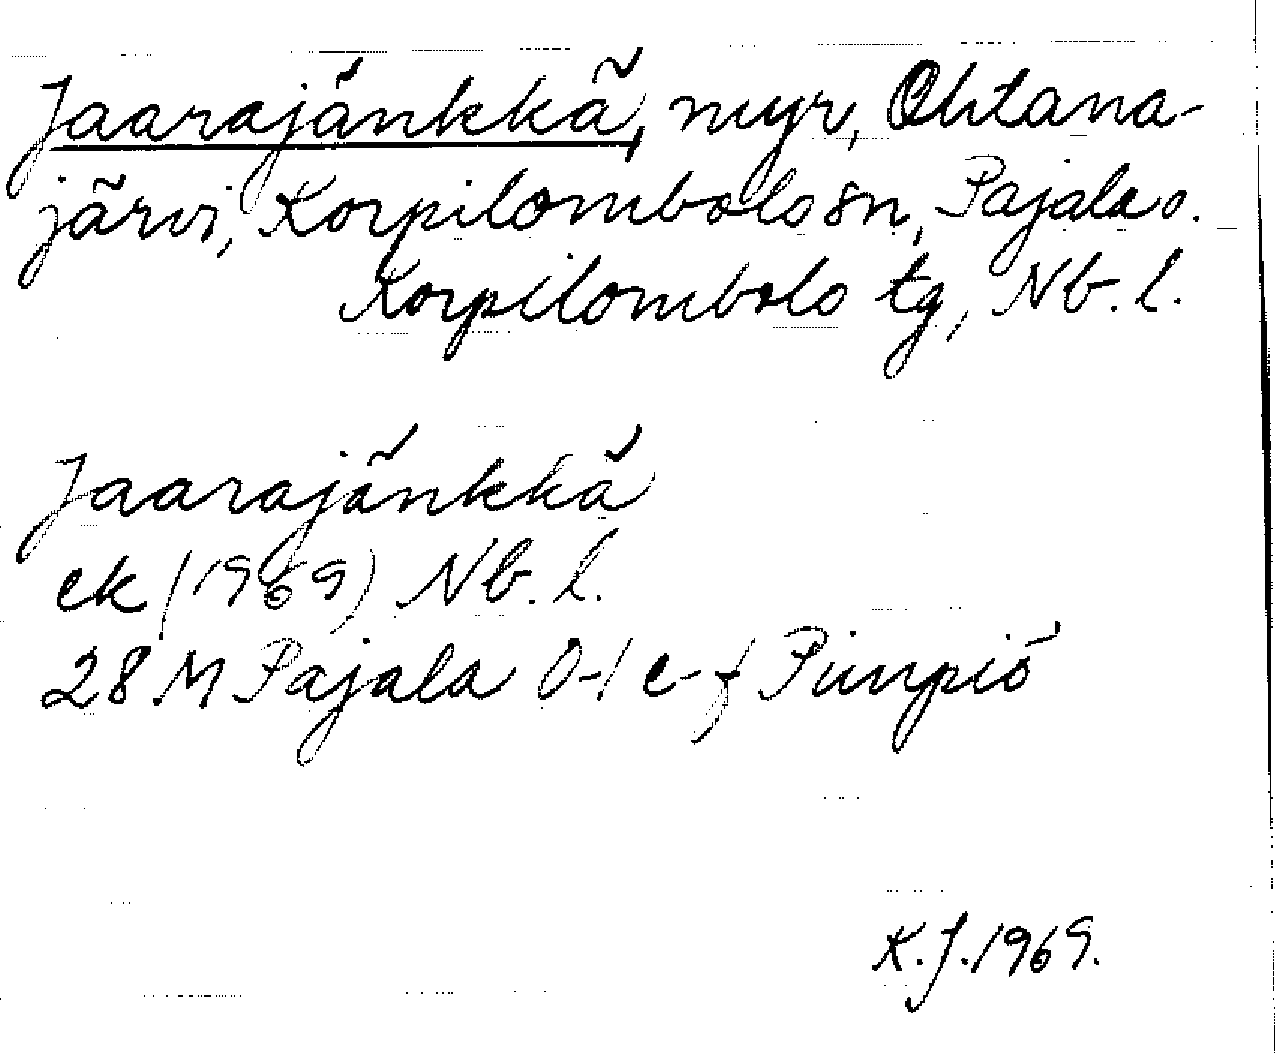 Jaarajänkkä, myr, Ohtana-
järvi, Korpilombolo sn, Pajala o.
Korpilombolo tg, Nb. l.
Jaarajänkkä
ek (1969) Nb. l.
28 M Pajala 0-1 e-f Piinpiö
K.J. 1969.